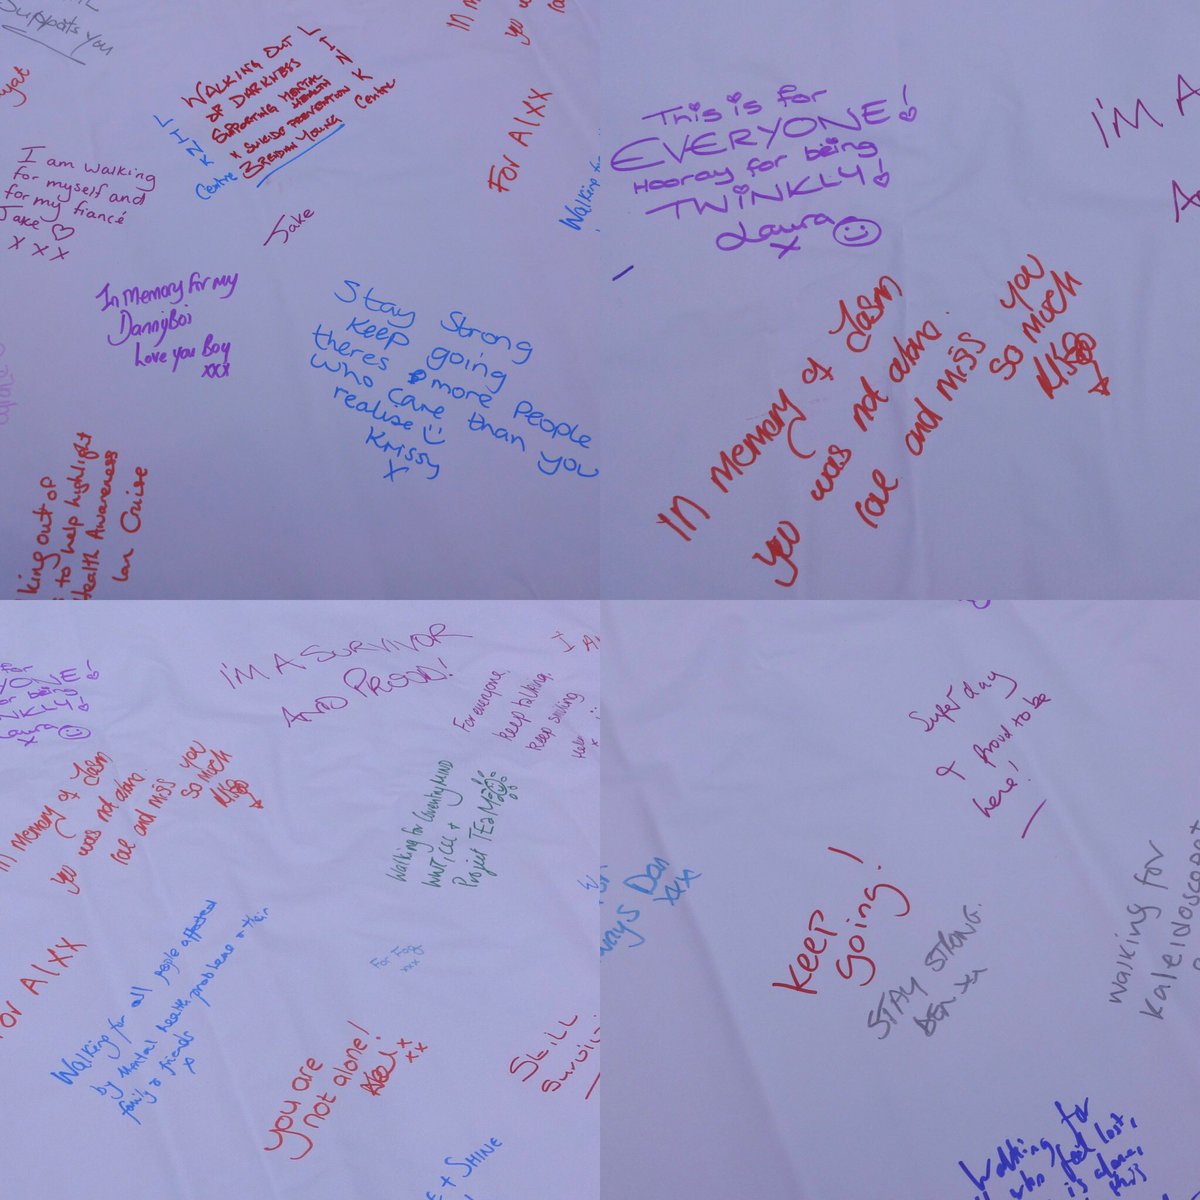 Supports you
WALKING OUT
OF DARKNESS
SUPPORTING MENTAL
HEALTH
& SUICIDE PREVENTION
BRENDAN YOUNG
LINK
Centre
LINK
Centre
I am walking
for myself and
for my fiancé
Jake ♡
x x x
Jake
For Al XX
Walking for
In Memory for my
DannyBoi
Love you Boy
xxx
Stay Strong
Keep going
theres more people
who care than you
realise
Krissy
x
king out of
to help highlight
Health Awareness
Cruise
This is for
EVERYONE!
Hooray for being
TWINKLY!
Laura
x
I'M A
In memory of
you was not alone.
and miss you
so much
I'M A SURVIVOR
AND PROUD!
For everyone,
keep talking,
keep smiling
x
YONE!
for being
NKLY!
aura
x
In memory of
you was not alone.
and miss you
so much
Walking for Coventry MIND
Project TEAM
Walking for all people affected
by mental health problems & their
family & friends
x
For Al XX
you are
not alone!
x
xx
Still
+ SHINE
Super day
& proud to be
here!
Keep
Going!
STAY STRONG.
BEN xx
ways Dan
xxx
Walking for
Kaleidoscope
Walking for
who feel lost,
is alone,
this